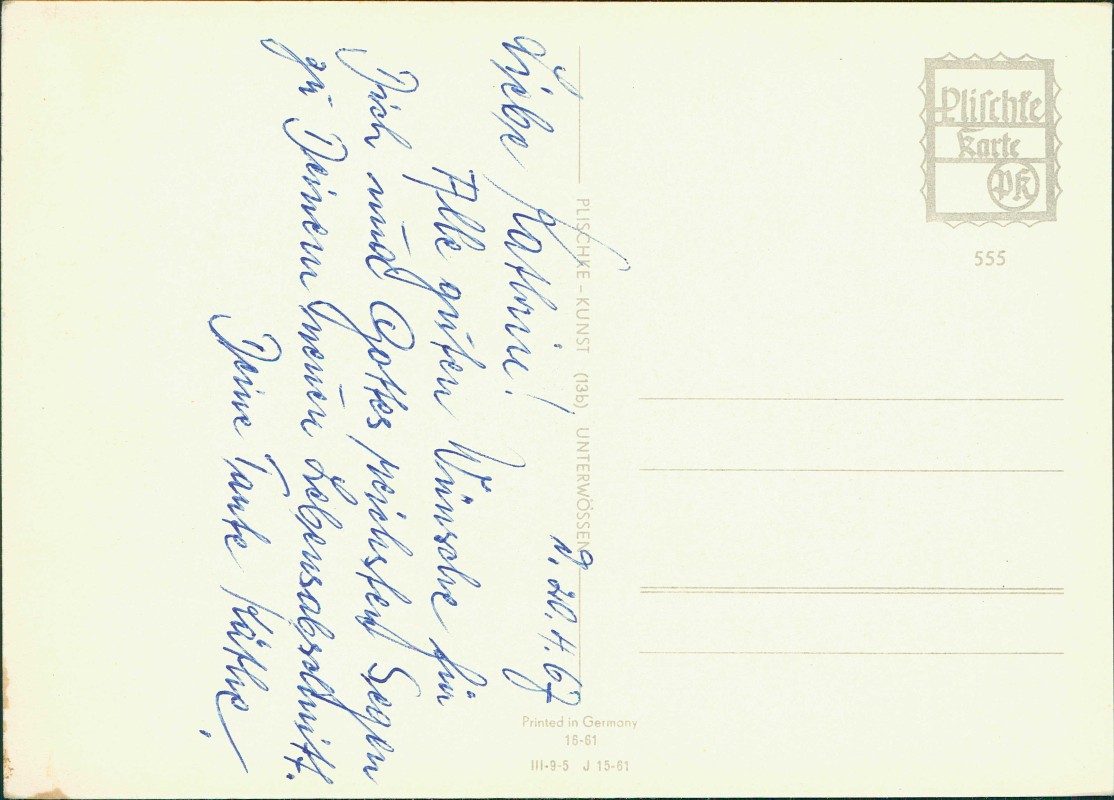 D. 20. 4. 67
Liebe Kathrin!
Alle guten Wünsche für
Dich und Gottes reichsten Segen
zu Deinem neuen Lebensabschnitt.
Deine Tante Käthe.
PLISCHKE-KUNST (13b) UNTERWÖSSEN
Plischke
Karte
PK
555
Printed in Germany
16-61
III-9-5 J 15-61